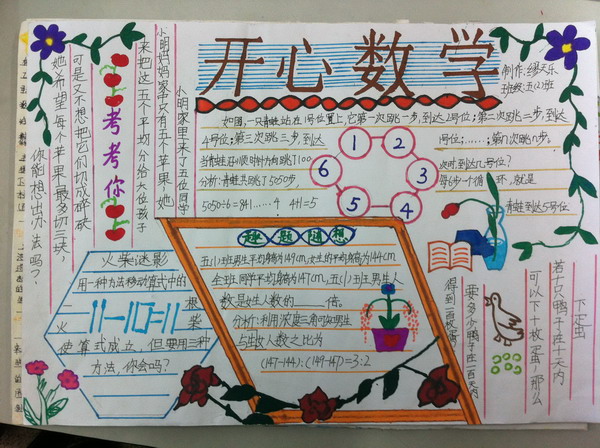 开心数学
制作:缪天乐
班级:五(2)班
如图,一只青蛙站在1号位置上,它第一次跳一步,到达2号位;第二次跳二步,到达
4号位;第三次跳三步,到达
1号位;……;第n次跳n步。
当青蛙沿顺时针方向跳了100
次时,到达几号位?
分析:青蛙共跳了5050步,
每6步一个循环,就是
5050÷6=841……4 4+1=5
青蛙到达5号位
1
2
3
4
5
6
考考你
小明家里来了五位同学
小明妈妈家中只有五个苹果,她
来把这五个平均分给六位孩子
可是又不想把它们切成碎块
她希望每个苹果最多切三块,
你能想出办法吗?
火柴谜影
用一种方法移动算式中的
火
11-10=11
根
柴
使算式成立,但要用三种
方法,你会吗?
趣题随想
五(1)班男生平均身高为149cm,女生的平均身高为144cm
全班同学平均身高为147cm,五(1)班男生人
数是女生人数的____倍。
分析:利用浓度三角可知男生
与女生人数之比为
(147-144):(149-147)=3:2
下蛋
若十只鸭子在十天内
可以下十枚蛋,那么
要多少鸭子在一百天内
得到一百枚蛋?